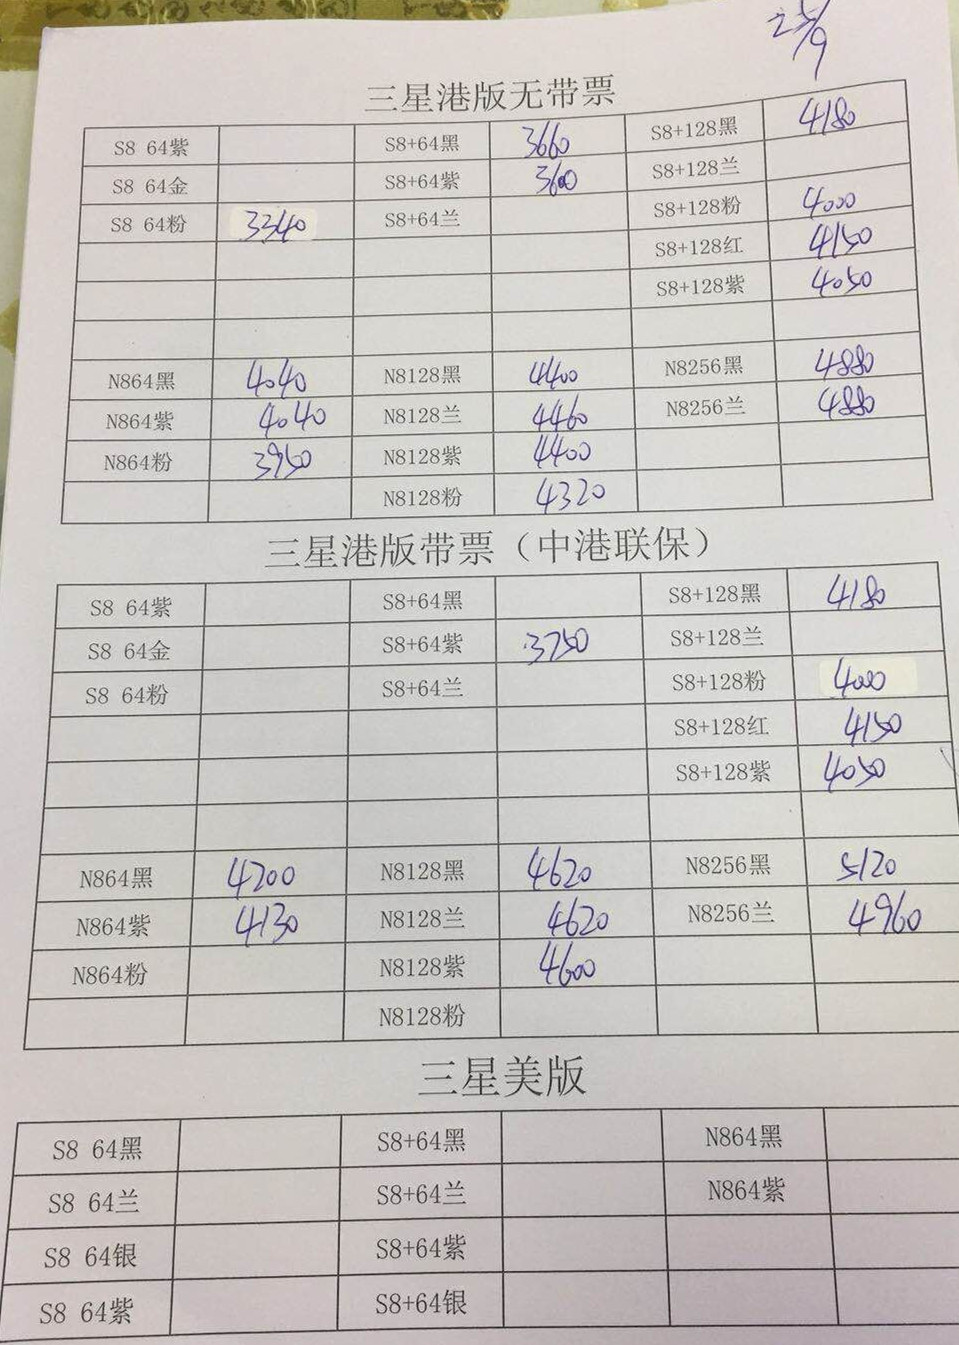 25/9
三星港版无带票
S8 64紫 S8+64黑 3660 S8+128黑 4180
S8 64金 S8+64紫 3600 S8+128兰
S8 64粉 3340 S8+64兰 S8+128粉 4000
S8+128红 4150
S8+128紫 4050
N864黑 4040 N8128黑 4400 N8256黑 4880
N864紫 4040 N8128兰 4460 N8256兰 4880
N864粉 3950 N8128紫 4400
N8128粉 4320
三星港版带票（中港联保）
S8 64紫 S8+64黑 S8+128黑 4180
S8 64金 S8+64紫 3750 S8+128兰
S8 64粉 S8+64兰 S8+128粉 4000
S8+128红 4150
S8+128紫 4050
N864黑 4200 N8128黑 4620 N8256黑 5120
N864紫 4130 N8128兰 4620 N8256兰 4960
N864粉 N8128紫 4600
N8128粉
三星美版
S8 64黑 S8+64黑 N864黑
S8 64兰 S8+64兰 N864紫
S8 64银 S8+64紫
S8 64紫 S8+64银